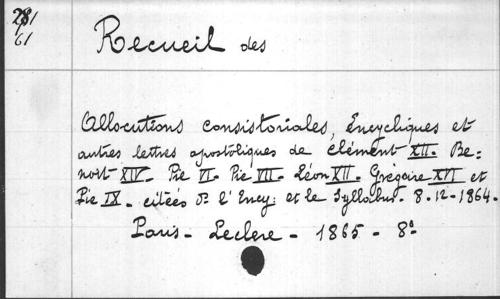 281
61
Recueil des
Allocutions consistoriales, Encycliques et
autres lettres apostoliques de Clément XII. Be=
noit XIV - Pie VI - Pie VII - Léon XII - Grégoire XVI et
Pie IX - citées ds l'Ency. et le Syllabus. 8-12-1864.
Paris - Leclere - 1865 - 8°